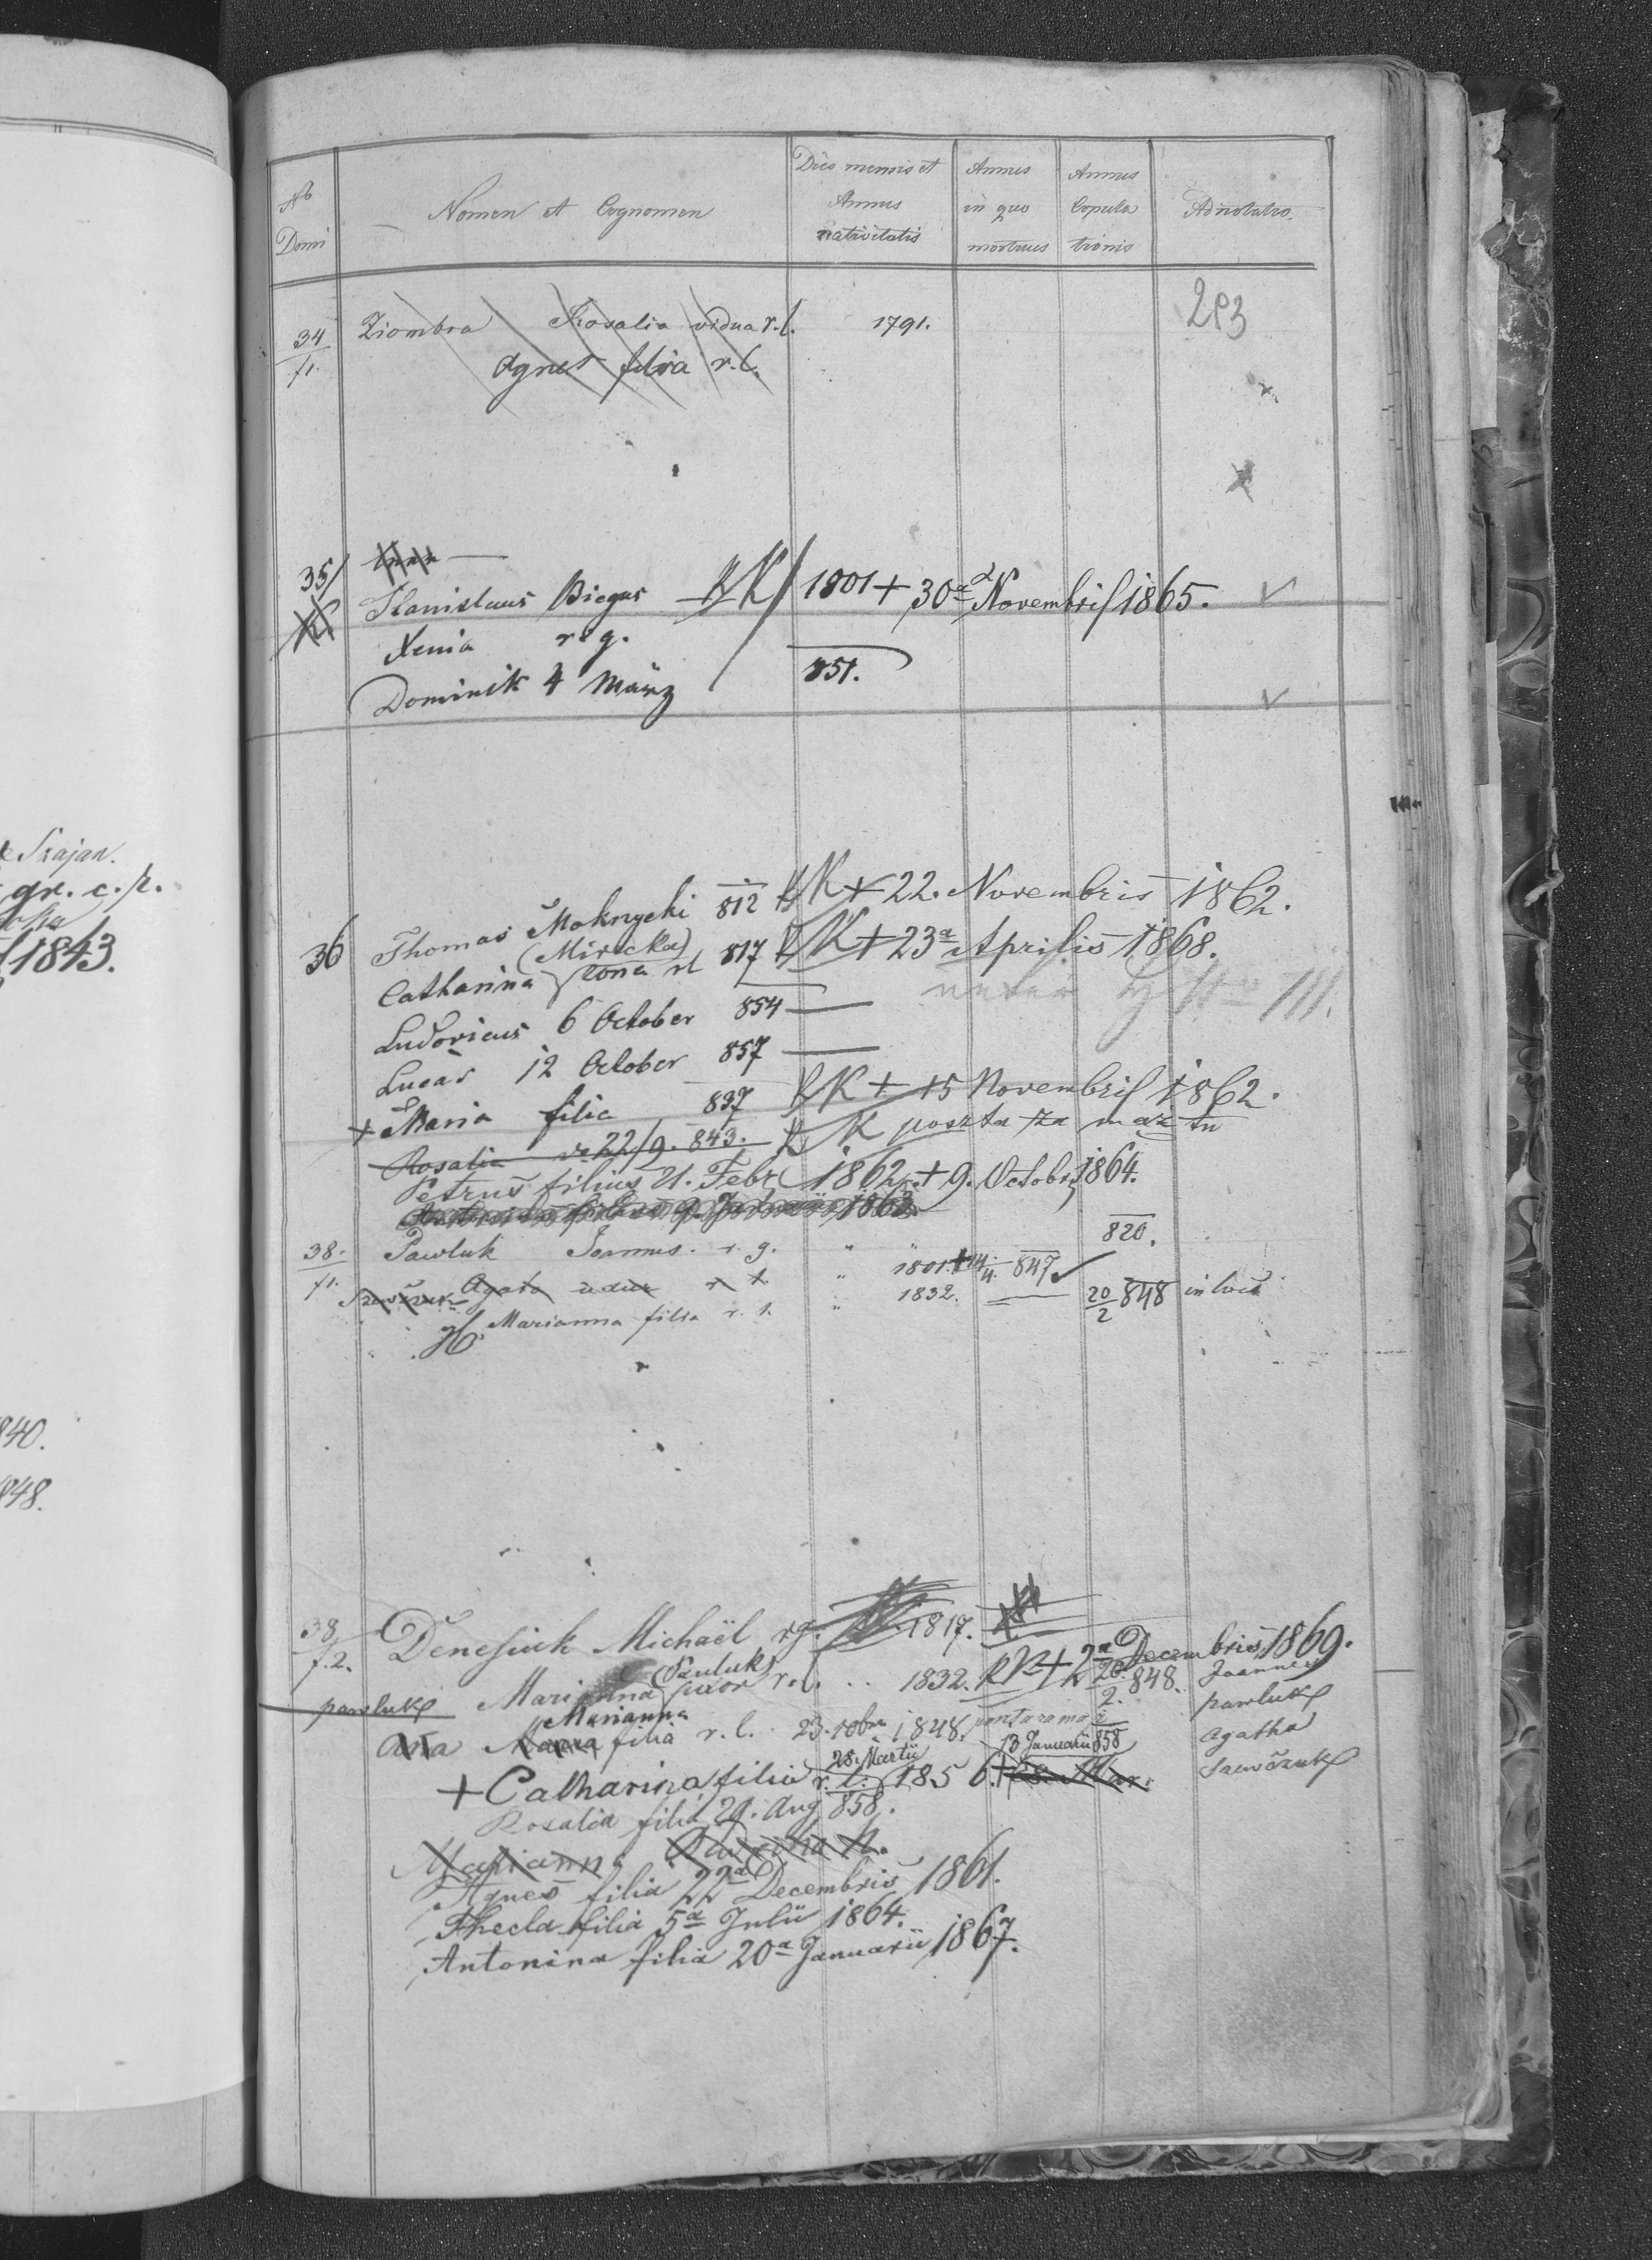 Szajan.
gr. c. r.
1843.
840.
848.
No Domi
Nomen et Cognomen
Dies mensis et Annus nativitatis
Annus in quo mortuus
Annus Copulationis
Adnotatio.
34/f1. Ziombra Rosalia vidua r.l. 1791. 293
Agnes filia r.l.
35/
Stanislaus Biegus K 1801 + 30a Novembris 1865.
Xenia r g.
Dominik 4 März 851.
36 Thomas Moknycki 812 K + 22. Novembris 1862.
(Mirecka)
Catharina żona rl 817 K + 23a Aprilis 1868.
III.
Ludovicus 6 October 854 —
Lucas 12 October 857 —
+ Maria filia 837 K + 15 Novembris 1862.
Rosalia 22/9. 843. K poszta za mąż tu
Petrus filius 21. Febr 1862. + 9. Octobr 1864.
Januarii 1862.
38./f1. Pawluk Joannes. r. g. " " 820.
Szewczuk Agata r. l. " 1801. + 14/4. 847
Marianna filia r. l. " 1832. — 20/2 848 in loco
38/f.2. Denesiuk Michaël rg. 1817.
(Pauluk)
Marianna uxor r.l. .. 1832. + 2a Decembris 1869.
20/2. 848. Joannes
pawluk pawluk
Marianna
Ana filia r. l. 23. 10bris 1848. Agatha
13 Januarii 858
28 Martii
+ Catharina filia r. l. 1856. + Mar. Szewczuk
Rosalia filia 29. Aug 858.
Marianna
Agnes filia 22a Decembris 1861.
Thecla filia 5a Julii 1864.
Antonina filia 20a Januarii 1867.